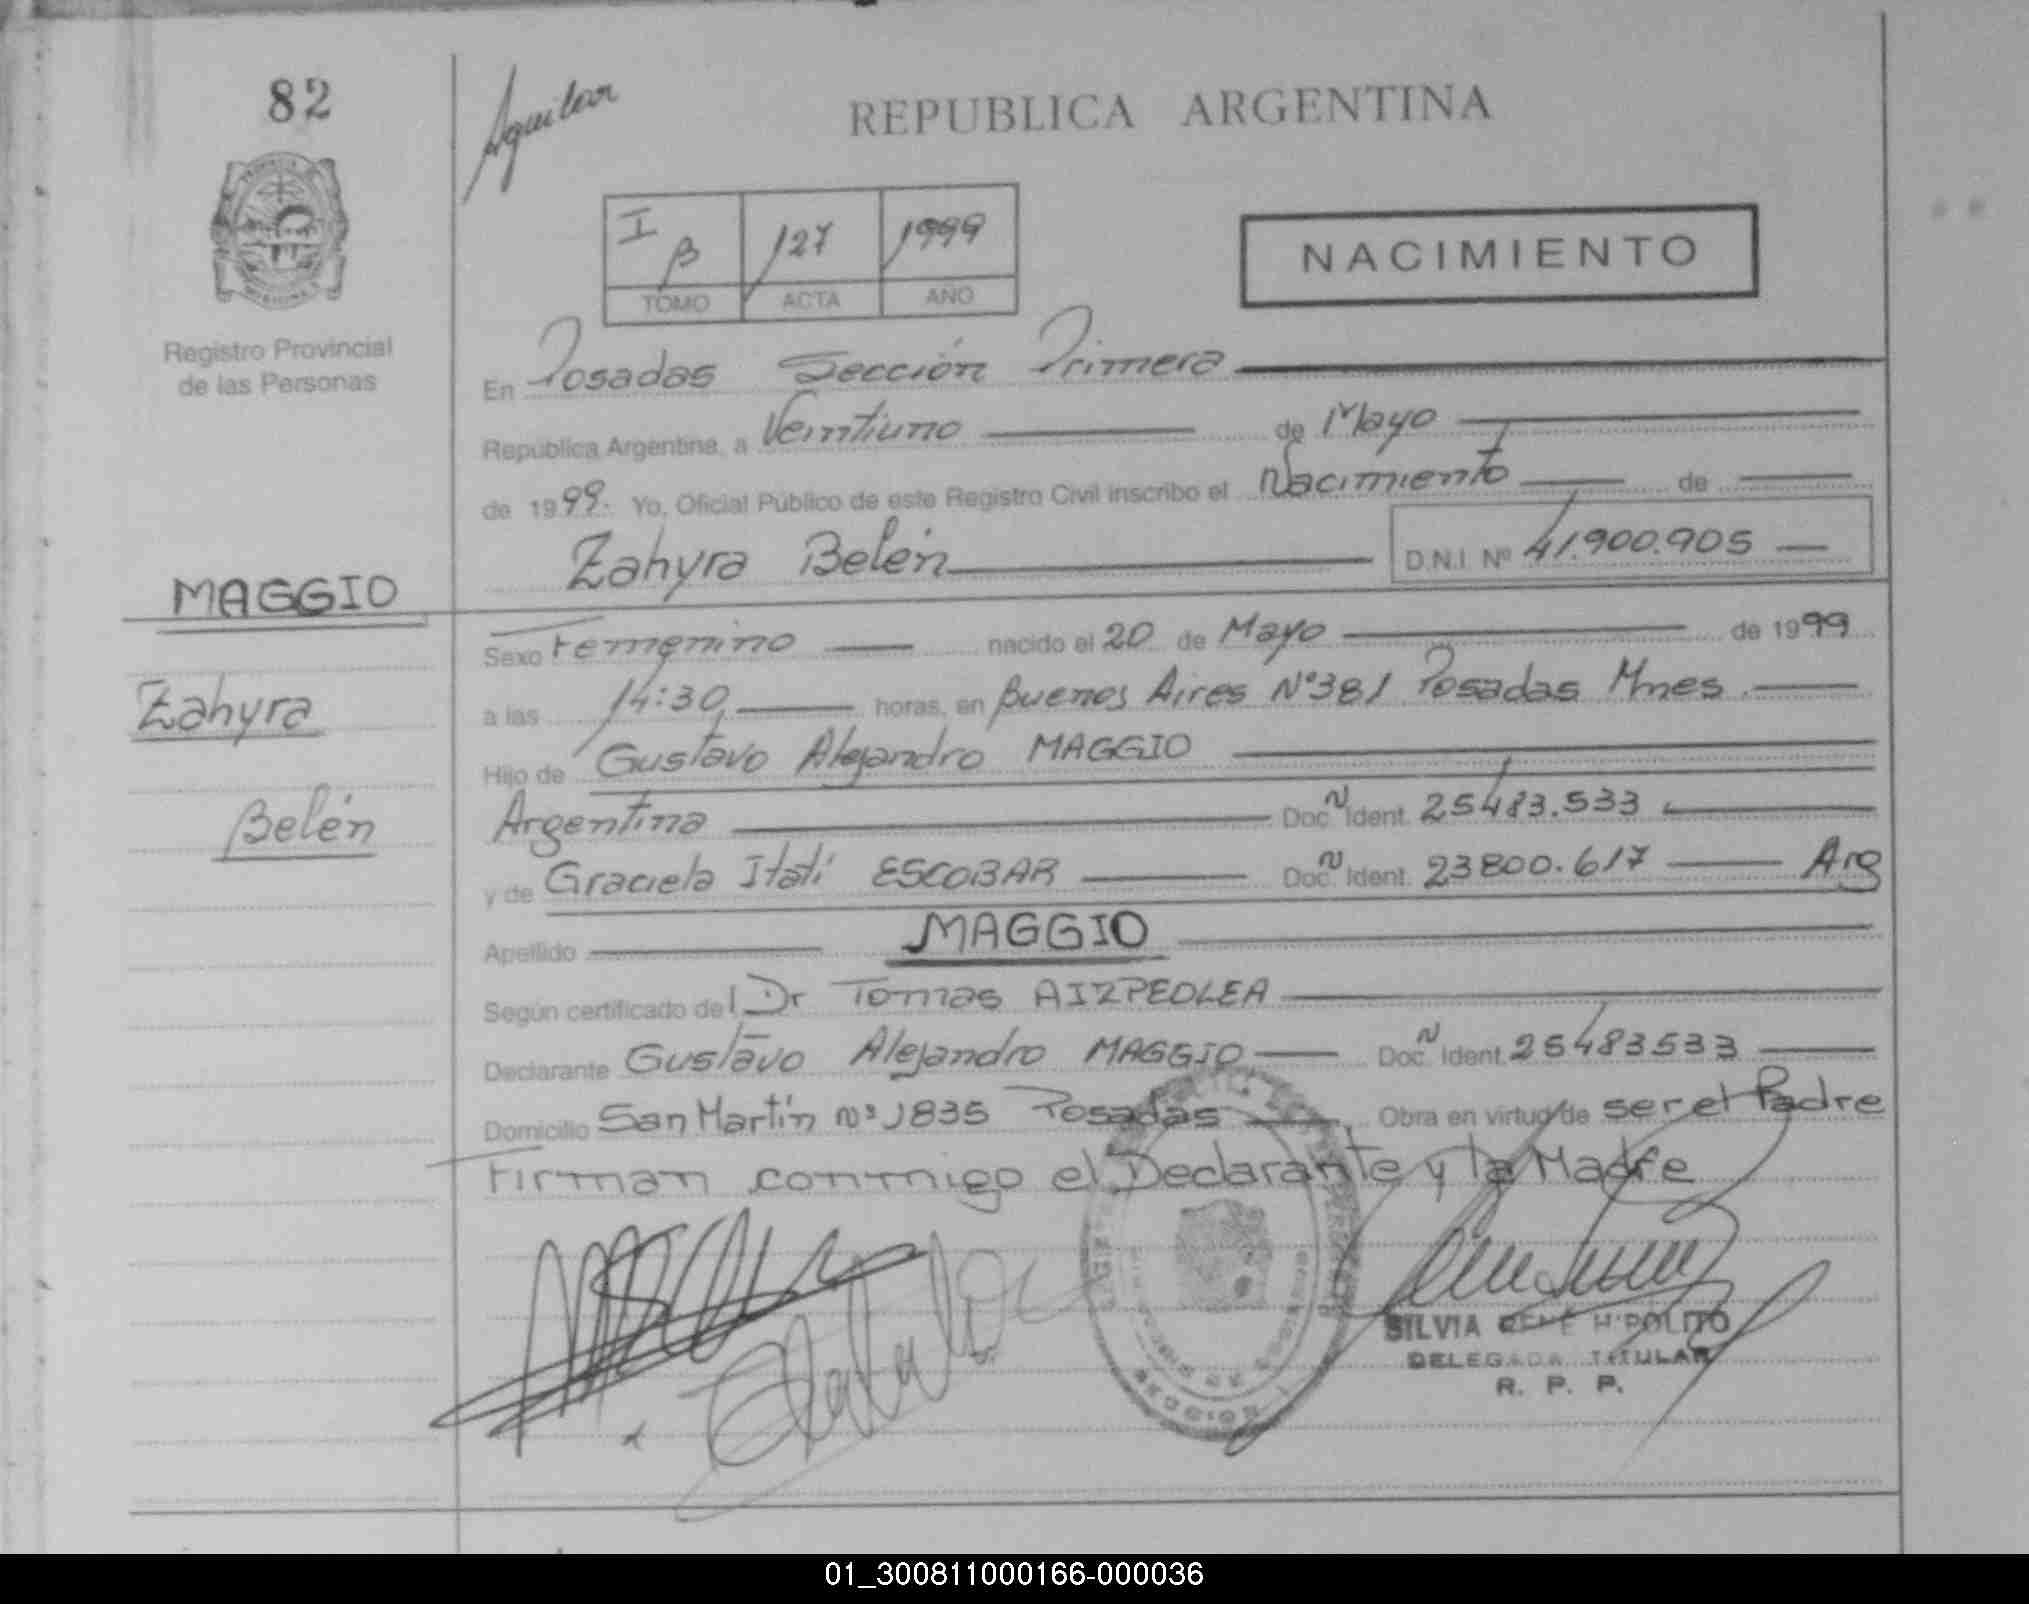 82
Aguilar
REPUBLICA ARGENTINA
I B 127 1999
TOMO ACTA AÑO
NACIMIENTO
Registro Provincial
de las Personas
En Posadas Sección Primera
República Argentina, a Veintiuno de Mayo
de 1999. Yo, Oficial Público de este Registro Civil inscribo el Nacimiento de
Zahyra Belén D.N.I. Nº 41.900.905
MAGGIO
Zahyra
Belén
Sexo Femenino nacido el 20 de Mayo de 1999
a las 14:30 horas, en Buenos Aires Nº 381 Posadas Mnes
Hijo de Gustavo Alejandro MAGGIO
Argentina Doc. N Ident. 25483.533
y de Graciela Itatí ESCOBAR Doc. N Ident. 23800.617 Arg
Apellido MAGGIO
Según certificado del Dr Tomas AIZPEOLEA
Declarante Gustavo Alejandro MAGGIO Doc. N Ident. 25483533
Domicilio San Martín Nº 1835 Posadas Obra en virtud de ser el Padre
Firman conmigo el Declarante y la Madre
SILVIA RENE HIPOLITO
DELEGADA TITULAR
R. P. P.
01_300811000166-000036